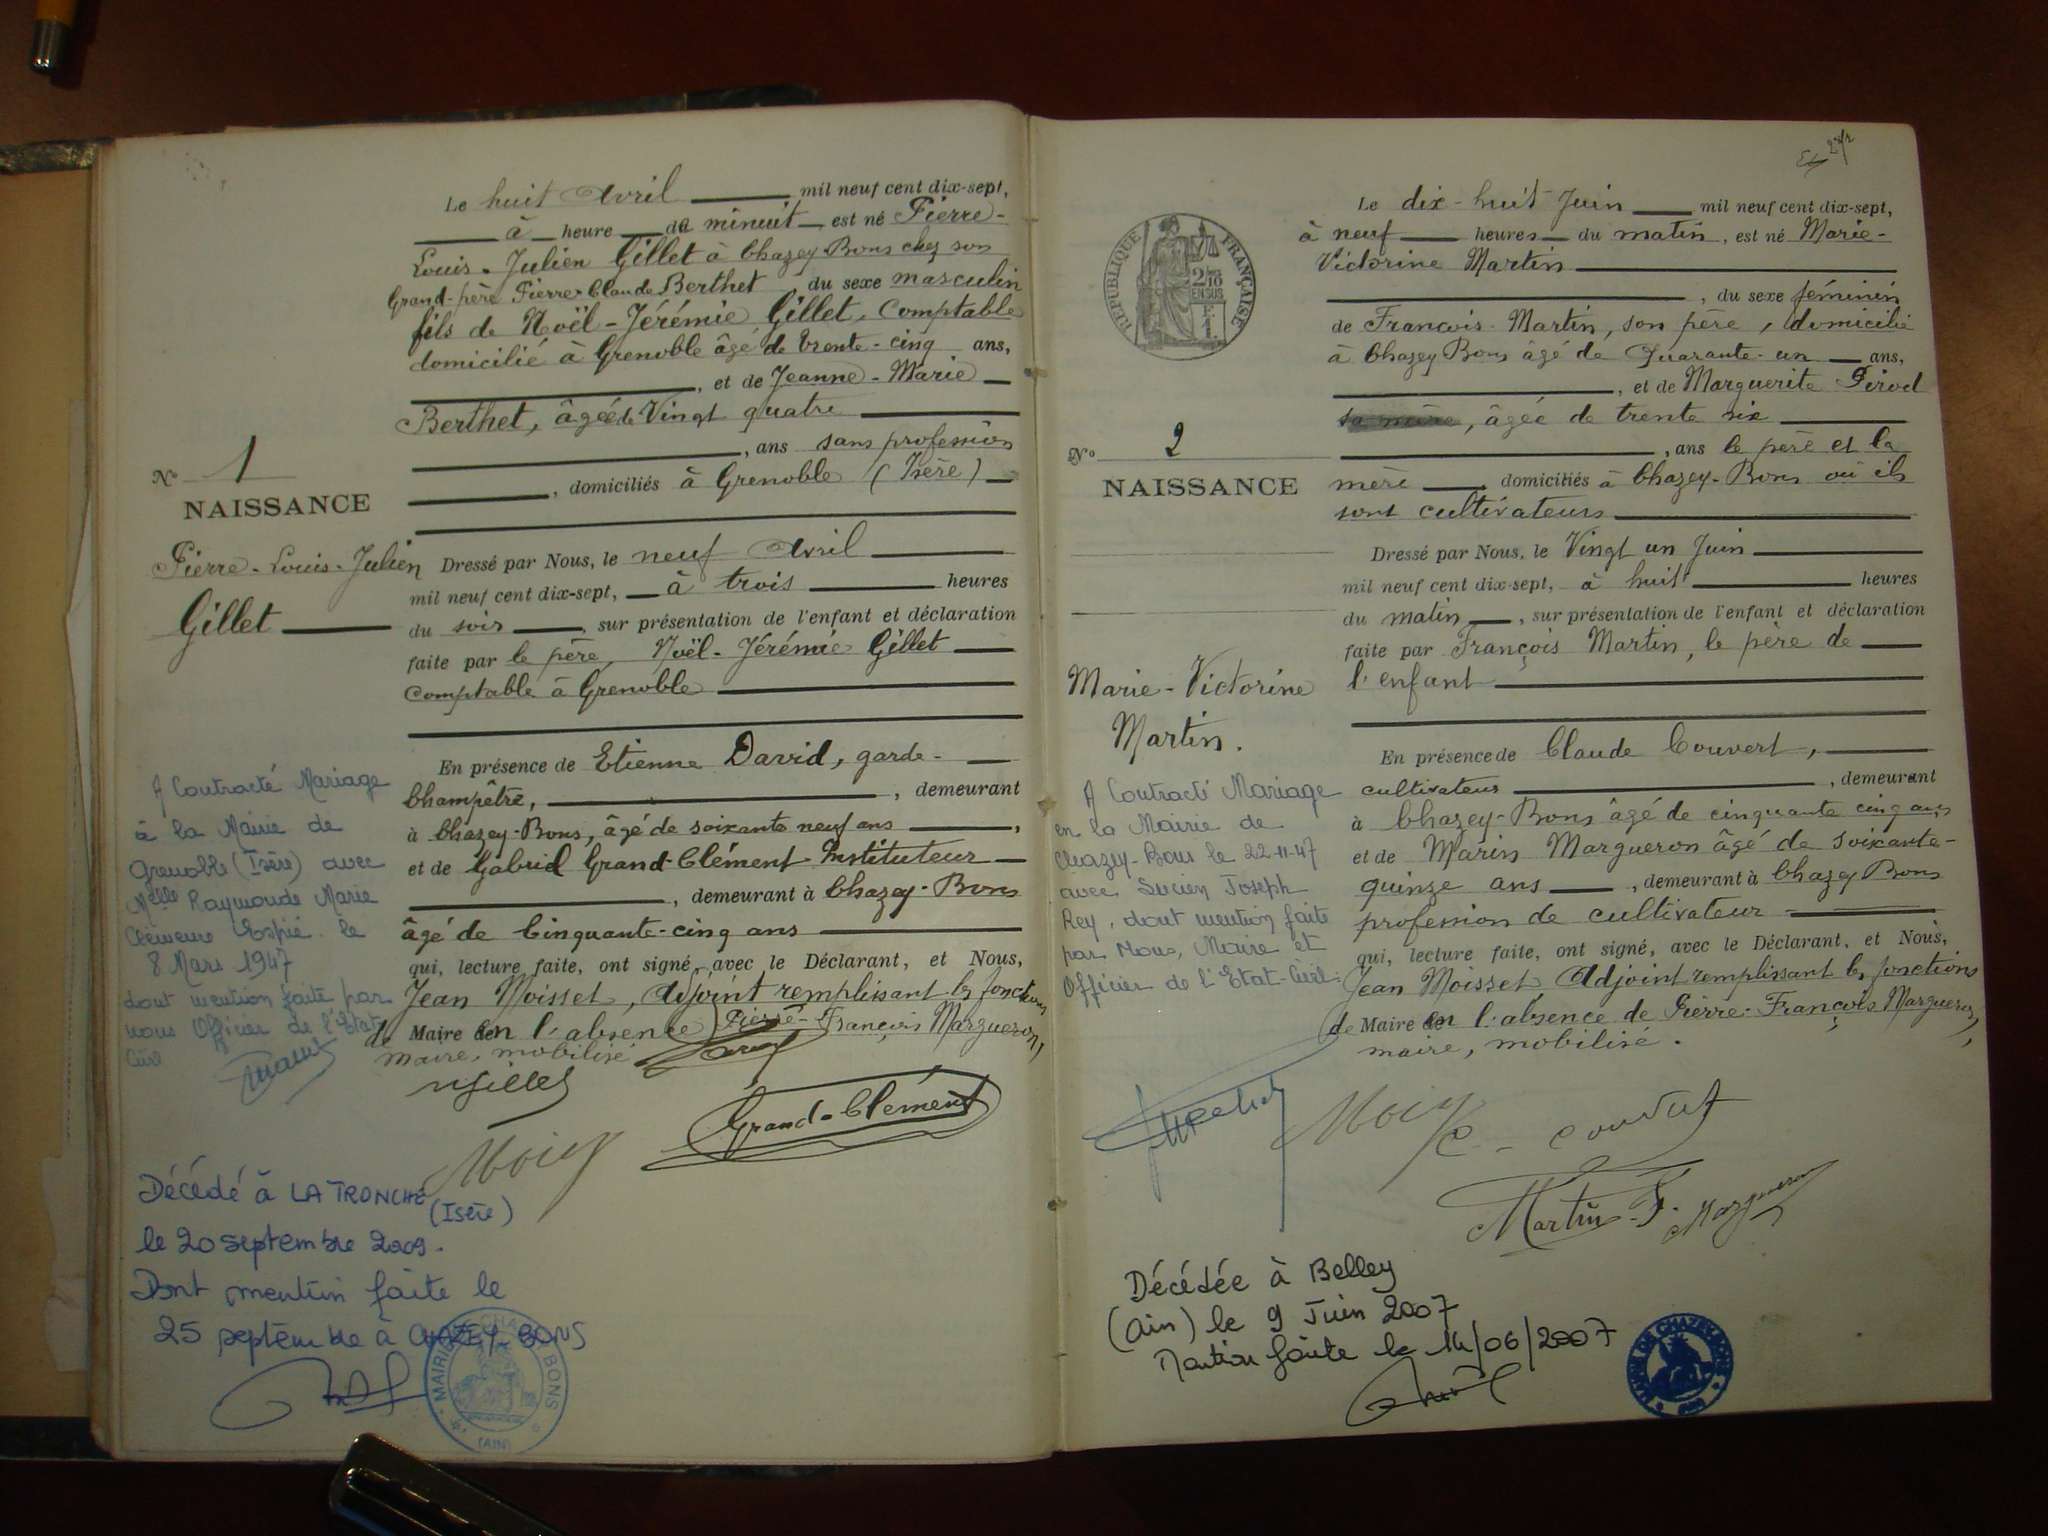 Le huit Avril mil neuf cent dix-sept,
à heure de minuit est né Pierre-
Louis-Julien Gillet à Chazey Bons chez son
Grand-père Pierre Claude Berthet, du sexe masculin
fils de Noël-Jérémie Gillet, Comptable
domicilié à Grenoble âgé de trente-cinq ans,
, et de Jeanne-Marie
Berthet, âgée de Vingt quatre
, ans sans profession
, domiciliés à Grenoble (Isère)
No 1
NAISSANCE
Pierre-Louis-Julien
Gillet
Dressé par Nous, le neuf Avril
mil neuf cent dix-sept, à trois heures
du soir, sur présentation de l'enfant et déclaration
faite par le père, Noël-Jérémie Gillet
comptable à Grenoble
En présence de Etienne David, garde-
Champêtre, , demeurant
à Chazey-Bons, âgé de soixante neuf ans,
et de Gabriel Grand-Clément Instituteur
, demeurant à Chazey-Bons
âgé de Cinquante-cinq ans
qui, lecture faite, ont signé avec le Déclarant, et Nous,
Jean Moisset, Adjoint remplissant les fonctions
de Maire en l'absence Pierre-François Margueron,
maire, mobilisé
A Contracté Mariage
à la Mairie de
Grenoble (Isère) avec
Melle Raymonde Marie
Clémence Espié le
8 Mars 1947
dont mention faite par
nous Officier de l'Etat
Civil
NGillet
Grand-Clément
Décédé à LA TRONCHE
(Isère)
le 20 septembre 2009.
Dont mention faite le
25 septembre à CHAZEY-BONS
MAIRIE DE CHAZEY BONS
(AIN)
Le dix-huit Juin mil neuf cent dix-sept,
à neuf heures du matin, est né Marie-
Victorine Martin
, du sexe féminin
de François Martin, son père, domicilié
à Chazey Bons âgé de Quarante-un ans,
, et de Marguerite Pirod
sa mère, âgée de trente six
, ans le père et la
mère domiciliés à Chazey-Bons où ils
sont cultivateurs
RÉPUBLIQUE FRANÇAISE
2/10
EN SUS
No 2
NAISSANCE
Marie-Victorine
Martin.
Dressé par Nous, le Vingt un Juin
mil neuf cent dix-sept, à huit heures
du matin, sur présentation de l'enfant et déclaration
faite par François Martin, le père de
l'enfant
En présence de Claude Couvert,
cultivateur , demeurant
à Chazey-Bons âgé de cinquante cinq ans,
et de Marin Margueron âgé de soixante-
quinze ans, demeurant à Chazey Bons
profession de cultivateur
qui, lecture faite, ont signé, avec le Déclarant, et Nous,
Jean Moisset Adjoint remplissant les fonctions
de Maire en l'absence de Pierre-François Margueron,
maire, mobilisé.
A Contracté Mariage
en la Mairie de
Chazey-Bons le 22-11-47
avec Lucien Joseph
Rey, dont mention faite
par Nous, Maire et
Officier de l'Etat-Civil
C. Couvert
Martin-F. Margueron
Décédée à Belley
(Ain) le 9 Juin 2007
Mention faite le 14/06/2007
MAIRIE DE CHAZEY-BONS
(AIN)